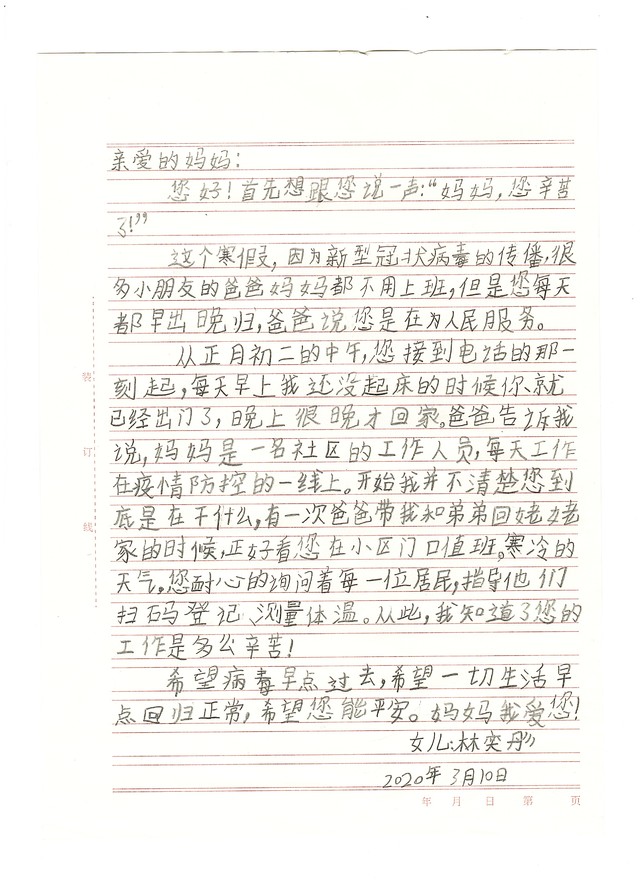 亲爱的妈妈：
您好！首先想跟您说一声:“妈妈，您辛苦
了!”
这个寒假，因为新型冠状病毒的传播，很
多小朋友的爸爸妈妈都不用上班，但是您每天
都早出晚归，爸爸说您是在为人民服务。
从正月初二的中午，您接到电话的那一
刻起，每天早上我还没起床的时候你就
已经出门了，晚上很晚才回家。爸爸告诉我
说，妈妈是一名社区的工作人员，每天工作
在疫情防控的一线上。开始我并不清楚您到
底是在干什么，有一次爸爸带我和弟弟回姥姥
家的时候，正好看您在小区门口值班。寒冷的
天气。您耐心的询问着每一位居民，指导他们
扫码登记、测量体温。从此，我知道了您的
工作是多么辛苦！
希望病毒早点过去，希望一切生活早
点回归正常，希望您能平安。妈妈我爱您！
女儿:林奕彤
2020年3月10日
年 月 日 第 页
装
订
线